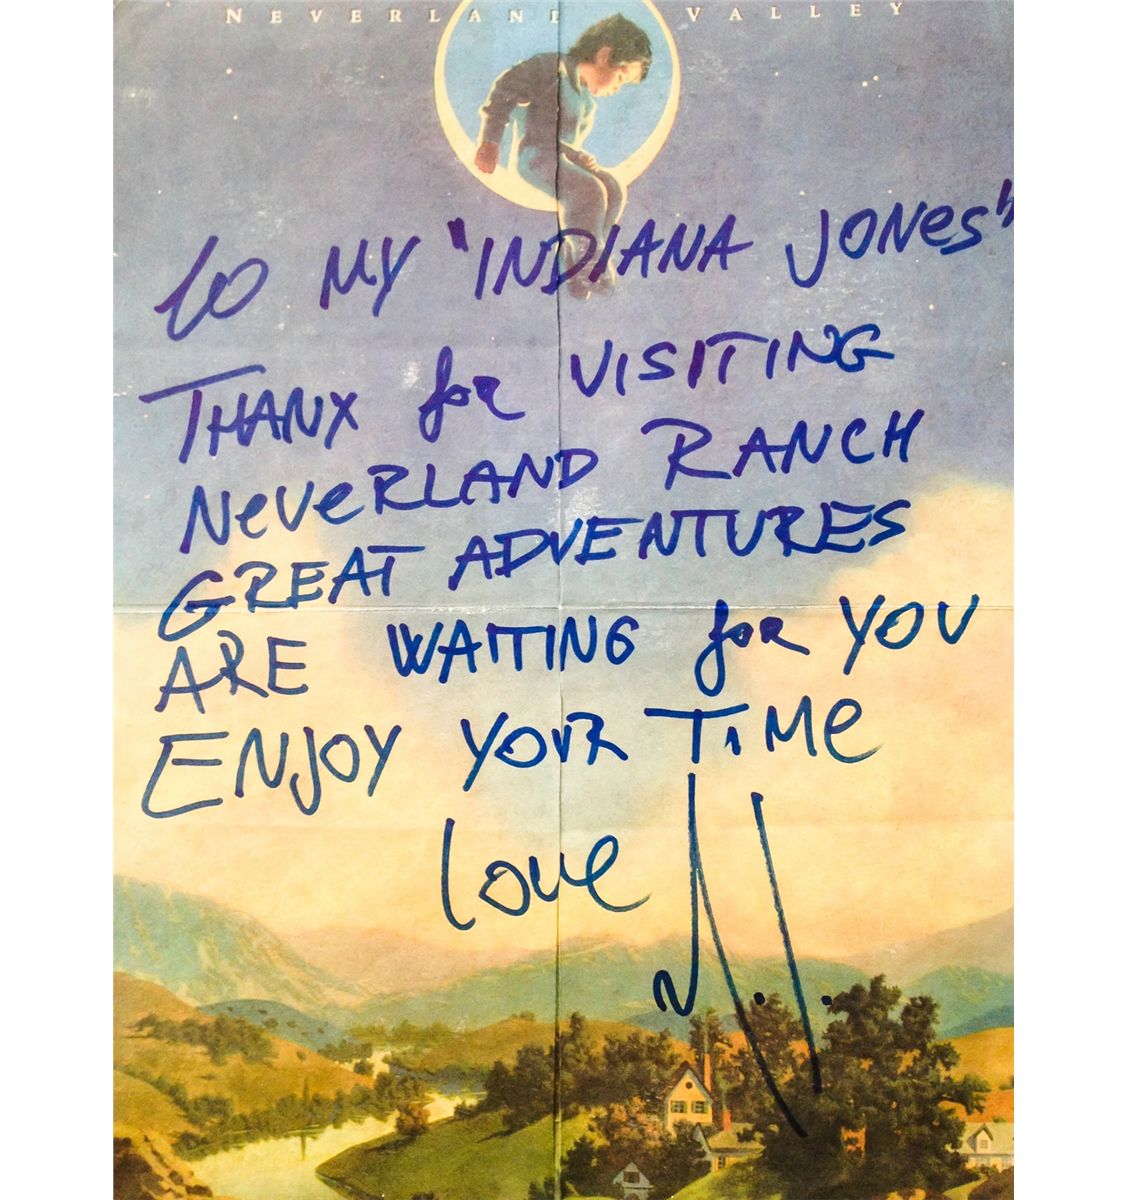 NEVERLAND VALLEY
to MY "INDIANA JONes"
THANX for VISITING
NeVeRLAND RANCH
GREAT ADVENTURES
ARE WAITING for YOU
ENJOY YOUR TiMe
Love M.J.